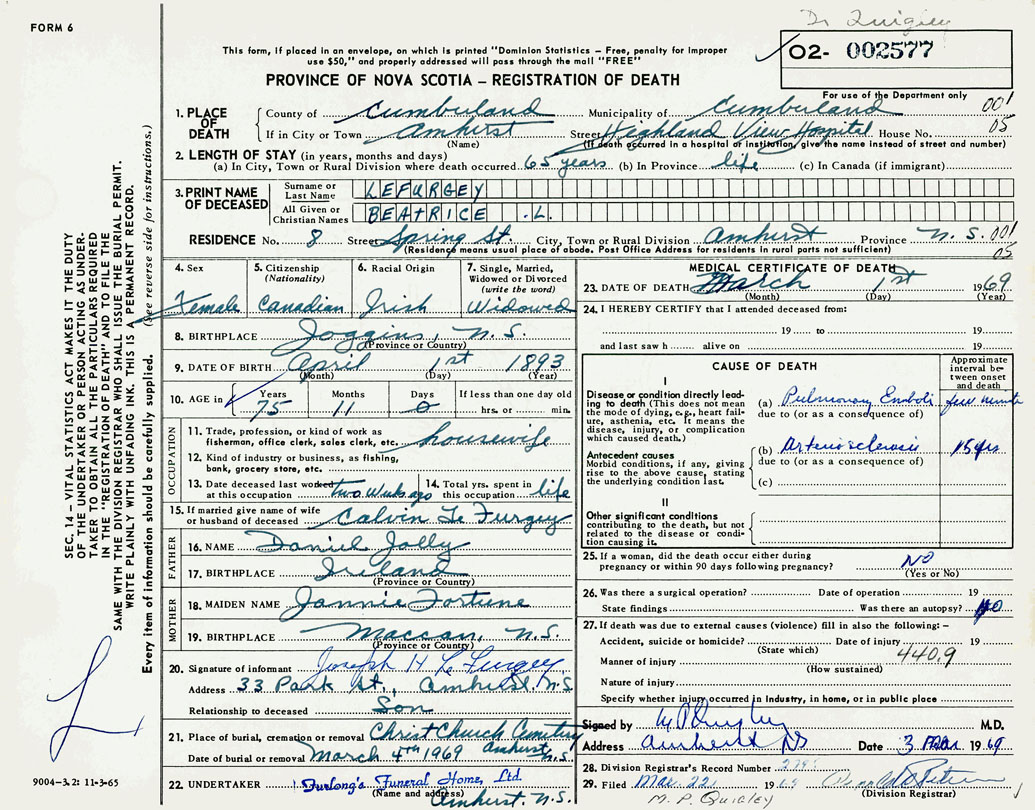 Dr Quigley
FORM 6
This form, if placed in an envelope, on which is printed "Dominion Statistics – Free, penalty for improper
use $50," and properly addressed will pass through the mail "FREE"
O2- 002577
PROVINCE OF NOVA SCOTIA – REGISTRATION OF DEATH
For use of the Department only
1. PLACE OF DEATH
County of Cumberland Municipality of Cumberland 001
If in City or Town Amhirst Street Highland View Hospital House No. 05
(Name) (If death occurred in a hospital or institution, give the name instead of street and number)
2. LENGTH OF STAY (in years, months and days)
(a) In City, Town or Rural Division where death occurred 65 years (b) In Province life (c) In Canada (if immigrant)
3. PRINT NAME OF DECEASED
Surname or Last Name LEFURGEY
All Given or Christian Names BEATRICE .L.
RESIDENCE No. 8 Street Spring St. City, Town or Rural Division Amhurst Province N.S. 001
(Residence means usual place of abode. Post Office Address for residents in rural parts not sufficient) 05
4. Sex
Female
5. Citizenship (Nationality)
Canadian
6. Racial Origin
Irish
7. Single, Married, Widowed or Divorced (write the word)
Widowed
8. BIRTHPLACE Joggins, N.S.
(Province or Country)
9. DATE OF BIRTH April 1st 1893
(Month) (Day) (Year)
10. AGE in Years Months Days If less than one day old
75 11 0 hrs. or min.
OCCUPATION
11. Trade, profession, or kind of work as fisherman, office clerk, sales clerk, etc. housewife
12. Kind of industry or business, as fishing, bank, grocery store, etc.
13. Date deceased last worked at this occupation two Weeks ago 14. Total yrs. spent in this occupation life
15. If married give name of wife or husband of deceased Calvin Le Furgey
FATHER
16. NAME Daniel Jolly
17. BIRTHPLACE Ireland
(Province or Country)
MOTHER
18. MAIDEN NAME Jannie Fortune
19. BIRTHPLACE Maccan, N.S.
(Province or Country)
20. Signature of informant Joseph H Le Furgey
Address 33 Park St., Amhurst, N.S
Relationship to deceased Son
21. Place of burial, cremation or removal Christ Church Cemetery
Date of burial or removal March 4th 1969 Amhurst N.S.
22. UNDERTAKER Furlong's Funeral Home, Ltd.
(Name and address) Amhurst, N.S.
MEDICAL CERTIFICATE OF DEATH
23. DATE OF DEATH March 1st 1969
(Month) (Day) (Year)
24. I HEREBY CERTIFY that I attended deceased from:
19 to 19
and last saw h alive on 19
CAUSE OF DEATH
Approximate interval between onset and death
I
Disease or condition directly leading to death (This does not mean the mode of dying, e.g., heart failure, asthenia, etc. It means the disease, injury, or complication which caused death.)
(a) Pulmonary Emboli few minute
due to (or as a consequence of)
Antecedent causes
Morbid conditions, if any, giving rise to the above cause, stating the underlying condition last.
(b) Arteriosclerosis 15 yrs
due to (or as a consequence of)
(c)
II
Other significant conditions contributing to the death, but not related to the disease or condition causing it.
25. If a woman, did the death occur either during pregnancy or within 90 days following pregnancy? NO
(Yes or No)
26. Was there a surgical operation? Date of operation 19
State findings Was there an autopsy? NO
27. If death was due to external causes (violence) fill in also the following: –
Accident, suicide or homicide? Date of injury 19
(State which) 440.9
Manner of injury
(How sustained)
Nature of injury
Specify whether injury occurred in industry, in home, or in public place
Signed by M P Quigley M.D.
Address Amherst NS Date 3 Mar 1969
28. Division Registrar's Record Number
29. Filed Mar. 22 1969
(Division Registrar)
M. P. QUIGLEY
SEC. 14 – VITAL STATISTICS ACT MAKES IT THE DUTY
OF THE UNDERTAKER OR PERSON ACTING AS UNDER-
TAKER TO OBTAIN ALL THE PARTICULARS REQUIRED
IN THE "REGISTRATION OF DEATH" AND TO FILE THE
SAME WITH THE DIVISION REGISTRAR WHO SHALL ISSUE THE BURIAL PERMIT.
WRITE PLAINLY WITH UNFADING INK. THIS IS A PERMANENT RECORD.
Every item of information should be carefully supplied. (See reverse side for instructions.)
9004-3.2: 11-3-65